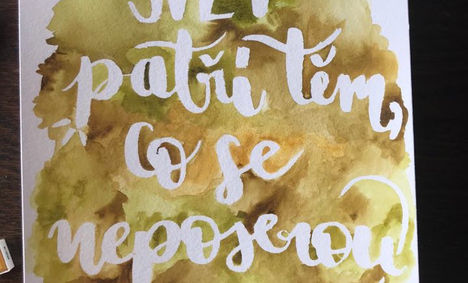 SVĚT
patří těm,
co se
neposerou